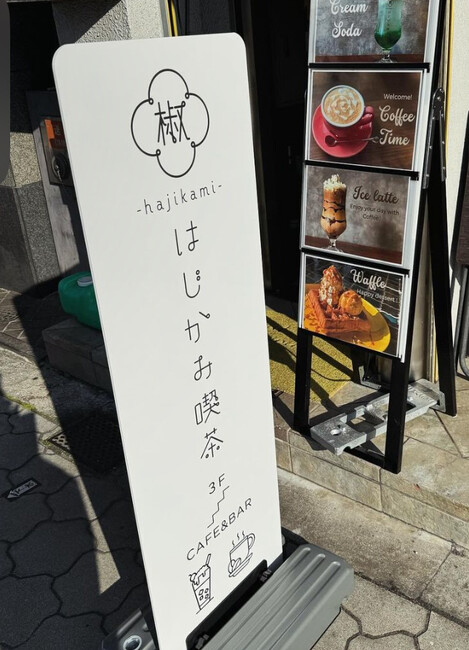 椒
-hajikami-
はじかみ喫茶
3F
CAFE&BAR
Cream
Soda
Welcome!
Coffee
Time
Ice latte
Enjoy your day with
Coffee
Waffle
Happy dessert!